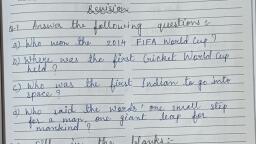 Revision
Q.1 Answer the following questions :-
a) Who won the 2014 FIFA World Cup ?
b) Where was the first Cricket World Cup
held ?
c) Who was the first Indian to go into
space ?
d) Who said the words 'one small step
for a man, one giant leap for
mankind ?
in the blanks :-